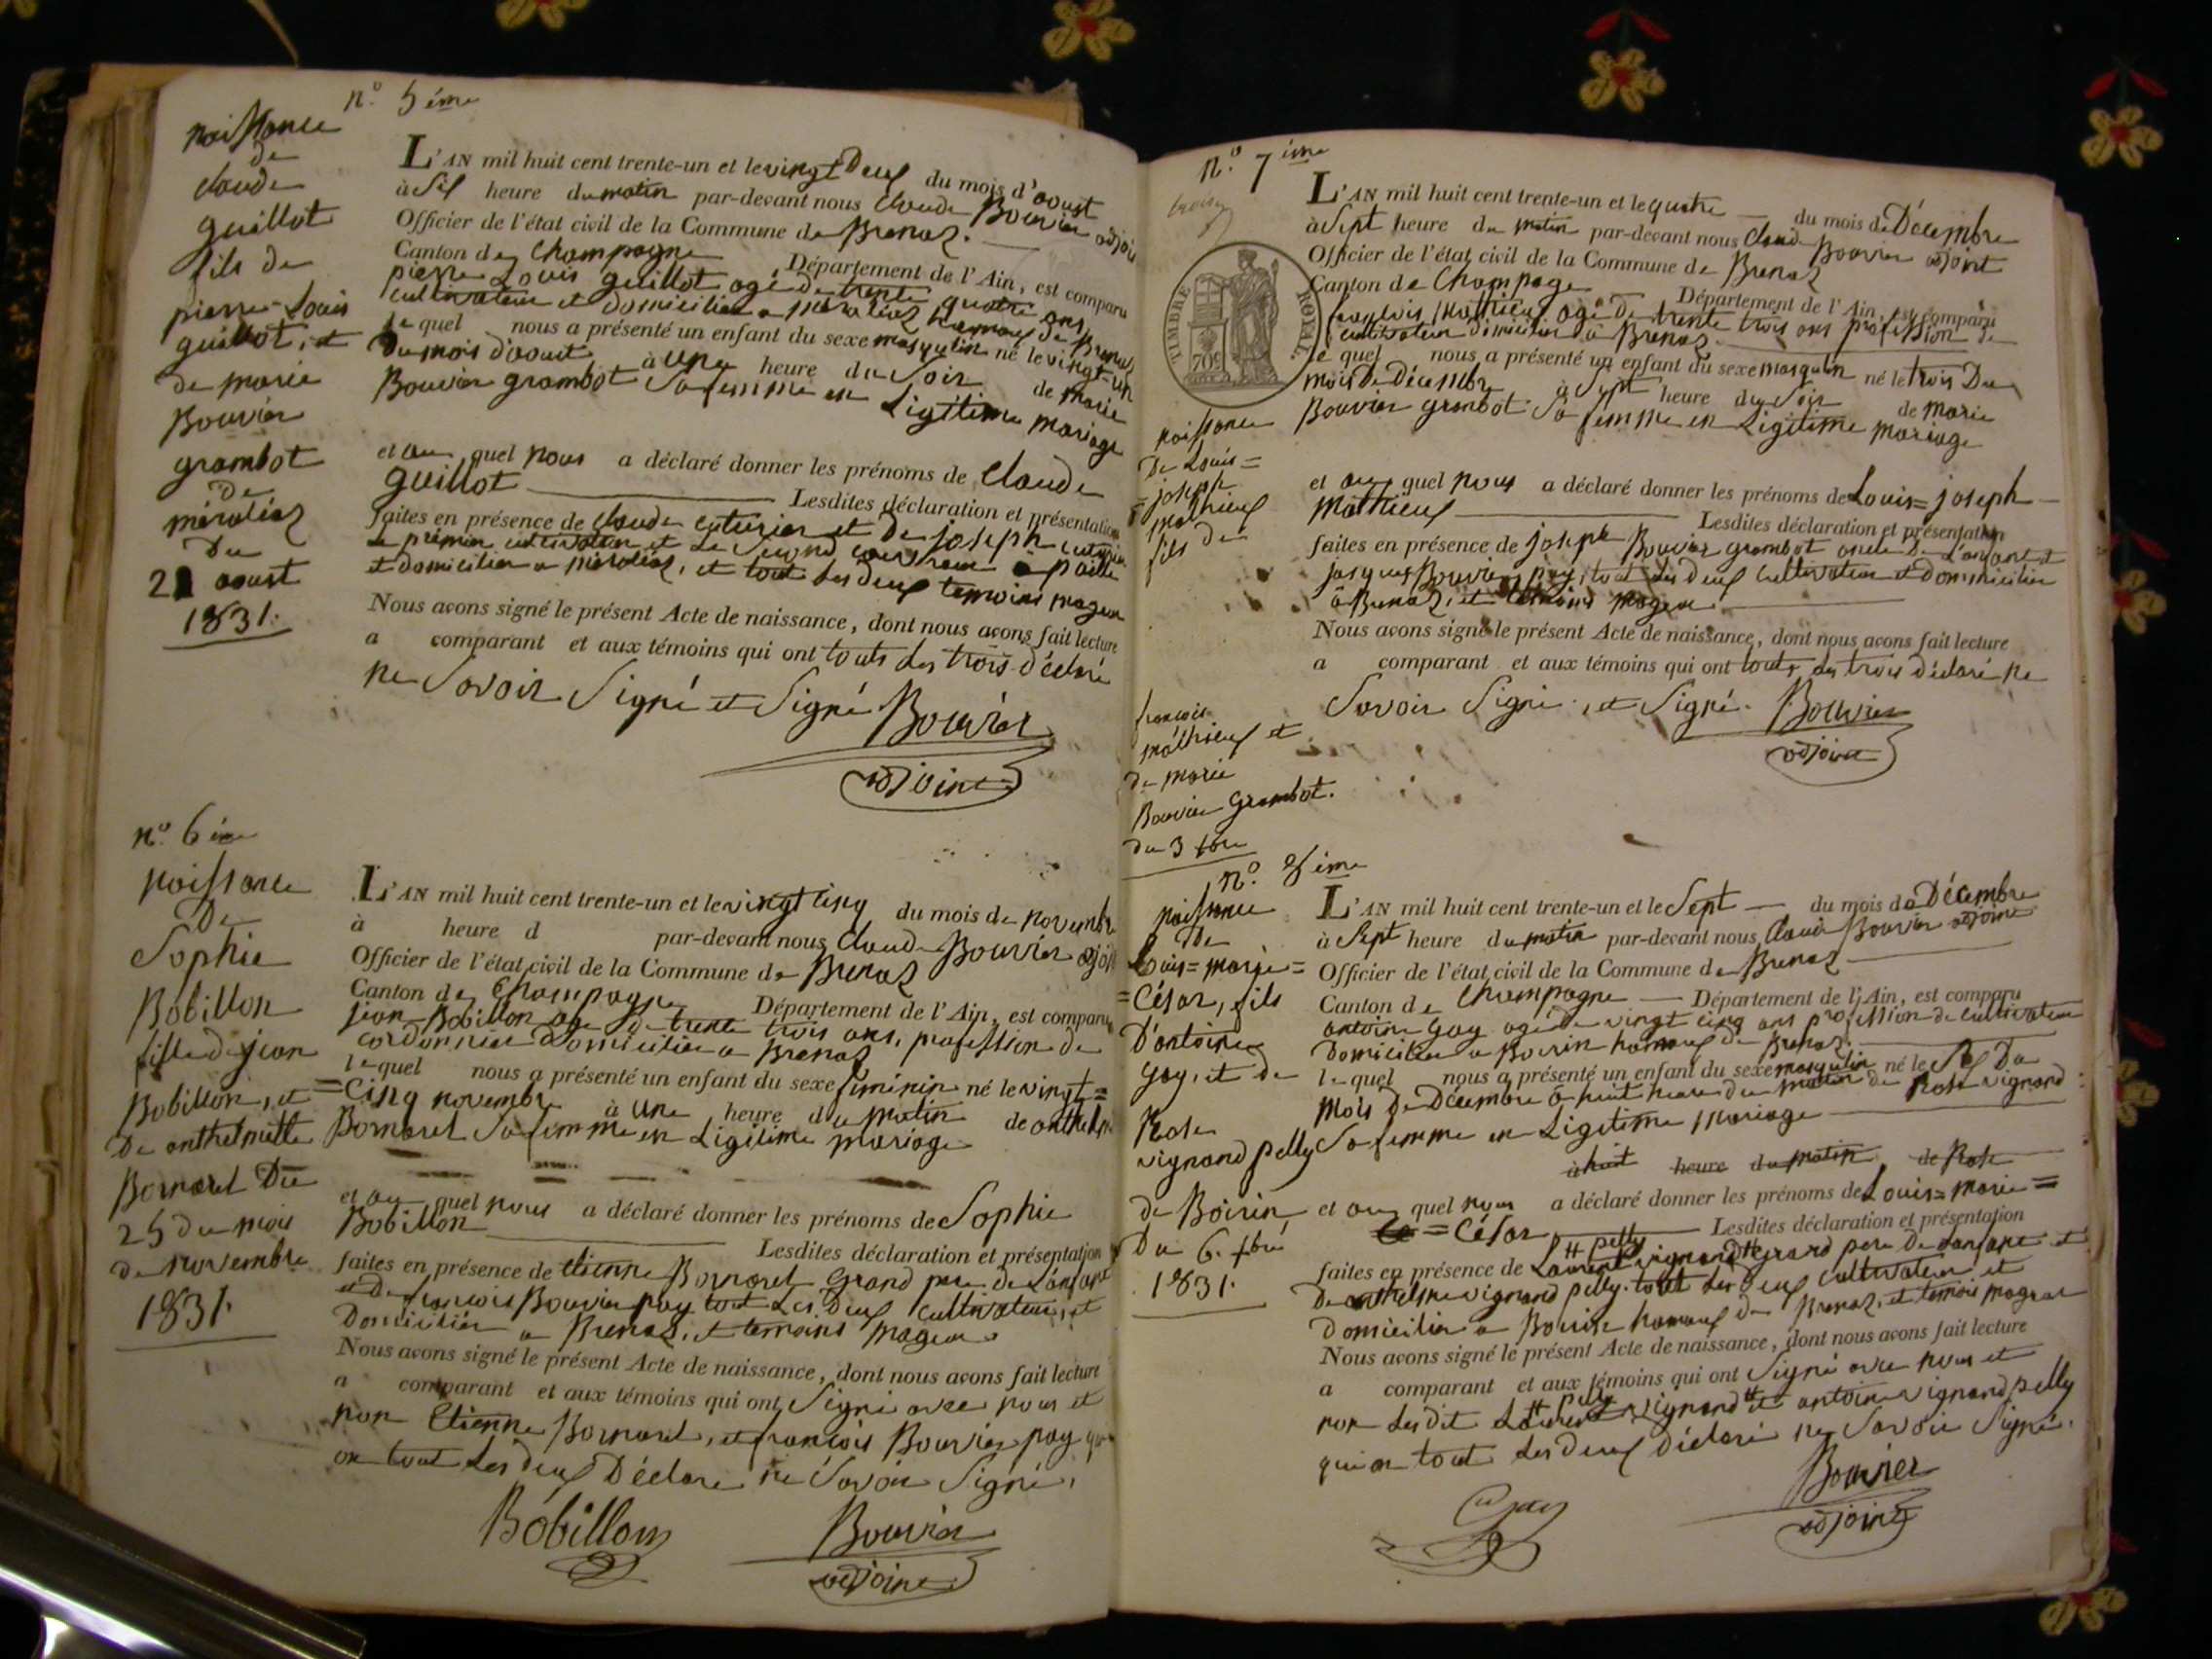 n.o 5 ème
naissance
de
claude
guillot
fils de
pierre-Louis
guillot, et
de marie
Bouvier
grambot
de
méraléaz
Du
21 aoust
1831.
L'AN mil huit cent trente-un et le vingt Deux du mois d'aoust
à Six heure du matin par-devant nous Claude Bouvier adjoin
Officier de l'état civil de la Commune de Brenaz.
Canton de Champagne Département de l'Ain, est comparu
pierre Louis guillot agé de trente quatre ans
cultivateur et domicilier a méraléaz hameaux de Brenaz
le quel nous a présenté un enfant du sexe masqulin né le vingt-un
Du mois d'aoust à une heure du Soir de marie
Bouvier grambot Sa femme en Ligitime mariage
et au quel nous a déclaré donner les prénoms de Claude
guillot Lesdites déclaration et présentation
faites en présence de claude cuturier et De joseph cuturier
Le premier cultivateur et Le Segond à paille
et domicilier a méraléaz, et tout Les deux temoins mageur
Nous avons signé le présent Acte de naissance, dont nous avons fait lecture
a comparant et aux témoins qui ont touts Les trois déclaré
ne Savoir Signé et Signé Bouvier
adjoint
n.o 6 ème
naissance
De
Sophie
Bobillon
fille de jean
Bobillon, et
De anthelmette
Bornarel Du
25 du mois
de novembre
1831.
L'AN mil huit cent trente-un et le vingt cinq du mois de novembre
à heure d par-devant nous Claude Bouvier adjoi
Officier de l'état civil de la Commune de Brenaz
Canton de Champagne Département de l'Ain, est comparu
jean Bobillon age de trente trois ans, profession de
cordonnier Domicilier a Brenaz
le quel nous a présenté un enfant du sexe féminin né le vingt=
=Cinq novembre à une heure du matin de anthelm
Bornarel Sa femme en Ligitime mariage
et au quel nous a déclaré donner les prénoms de Sophie
Bobillon Lesdites déclaration et présentation
faites en présence de Etienne Bornarel Grand pere de L'anfant
et De francois Bouvier pay tout Les Deux cultivateur, et
Domicilier a Brenaz, et temoins mageur
Nous avons signé le présent Acte de naissance, dont nous avons fait lecture
a comparant et aux témoins qui ont Signé avec nous et
non Etienne Bornarel, et francois Bouvier pay qui
on tout Les Deux Déclare ne Savoir Signé,
Bobillon Bouvier
adjoint
n.o 7 ème
TIMBRE ROYAL.
naissance
De Louis=
=joseph
mathieux
fils de
francois
mathieux et
de marie
Bouvier Grambot.
du 3 xbre
L'AN mil huit cent trente-un et le quatre du mois de Décembre
à Sept heure du matin par-devant nous Claude Bouvier adjoint
Officier de l'état civil de la Commune de Brenaz
Canton de Champage Département de l'Ain, est comparu
francois Mathieux agé de trente trois ans profession de
cultivateur domicilier a Brenaz
le quel nous a présenté un enfant du sexe masqulin né le trois Du
mois De Décembre à Sept heure du Soir de marie
Bouvier grambot Sa femme en Ligitime mariage
et au quel nous a déclaré donner les prénoms de Louis=joseph
Mathieux Lesdites déclaration et présentation
faites en présence de joseph Bouvier grambot oncle De L'anfant et
jacques Bouvier pay, tout Les deux cultivateur et domicilier
à Brenaz, et témoins mageur.
Nous avons signé le présent Acte de naissance, dont nous avons fait lecture
a comparant et aux témoins qui ont touts Les trois déclaré ne
Savoir Signé, et Signé. Bouvier
adjoint
n.o 8 ème
naissance
de
Louis=marie=
=César, fils
D'antoine
Gay, et de
Rose
vignand pelly
de Boirin
Du 6. xbre
1831.
L'AN mil huit cent trente-un et le Sept du mois de Décembre
à Sept heure du matin par-devant nous Claude Bouvier adjoint
Officier de l'état civil de la Commune de Brenaz
Canton de Champagne Département de l'Ain, est comparu
antoine Gay agé de vingt cinq ans profession de cultivateur
Domicilier a Boirin hameaux de Brenaz.
le quel nous a présenté un enfant du sexe masqulin né le Six Du
Mois De Décembre à huit heure du matin de Rose vignand
pelly Sa femme en Ligitime Mariage
à huit heure du matin de Rose
et au quel nous a déclaré donner les prénoms de Louis=Marie=
=César Lesdites déclaration et présentation
pelly
faites en présence de Laurent vignand grand pere De L'anfant et
De anthelme vignand pelly. tout Les Deux cultivateur et
Domicilier a Boirin hameaux de Brenaz, et temois mageur
Nous avons signé le présent Acte de naissance, dont nous avons fait lecture
a comparant et aux témoins qui ont Signé avec nous et
pelly
non Lesdit Laurent vignand et antoine vignand pelly
qui on tout Les Deux Déclaré ne Savoir Signé.
Gay Bouvier
adjoint